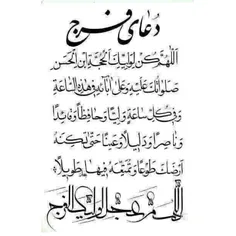 دعای فرج
اَللّهُمَّ كُنْ لِوَلِیِّكَ الْحُجَّةِ ابْنِ الْحَسَنِ
صَلَواتُكَ عَلَیْهِ وَعَلی آبائِهِ فی هذِهِ السّاعَةِ
وَفی كُلِّ ساعَةٍ وَلِیّاً وَحافِظاً وَقائِداً
وَناصِراً وَدَلیلاً وَعَیْناً حَتّی تُسْكِنَهُ
اَرْضَكَ طَوْعاً وَتُمَتِّعَهُ فیها طَویلاً
اللهم عجل لولیک الفرج